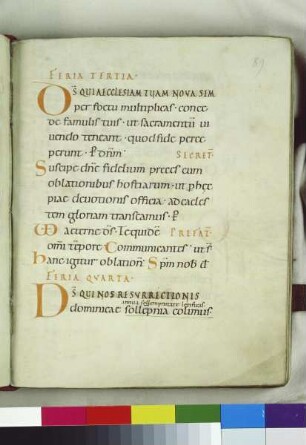 89
FERIA TERTIA·
DS QUI AECCLESIAM TUAM NOVA SEM
per foetu multiplicas· conce
de famulis tuis· ut sacramentū ui
uendo teneant· quod fide perce
perunt· p dnm̄ SECRET
Suscipe dnē fidelium preces cum
oblationibus hostiarum· ut p hęc
piae deuotionis officia· ad caeles
tem gloriam transeamus· p
aeterne ds· Te quidē PREFAT
omī tēpore Communicantes
hanc igitur oblationē
FERIA QUARTA·
DS QUI NOS RESURRECTIONIS
dominicae sollepnia colimus